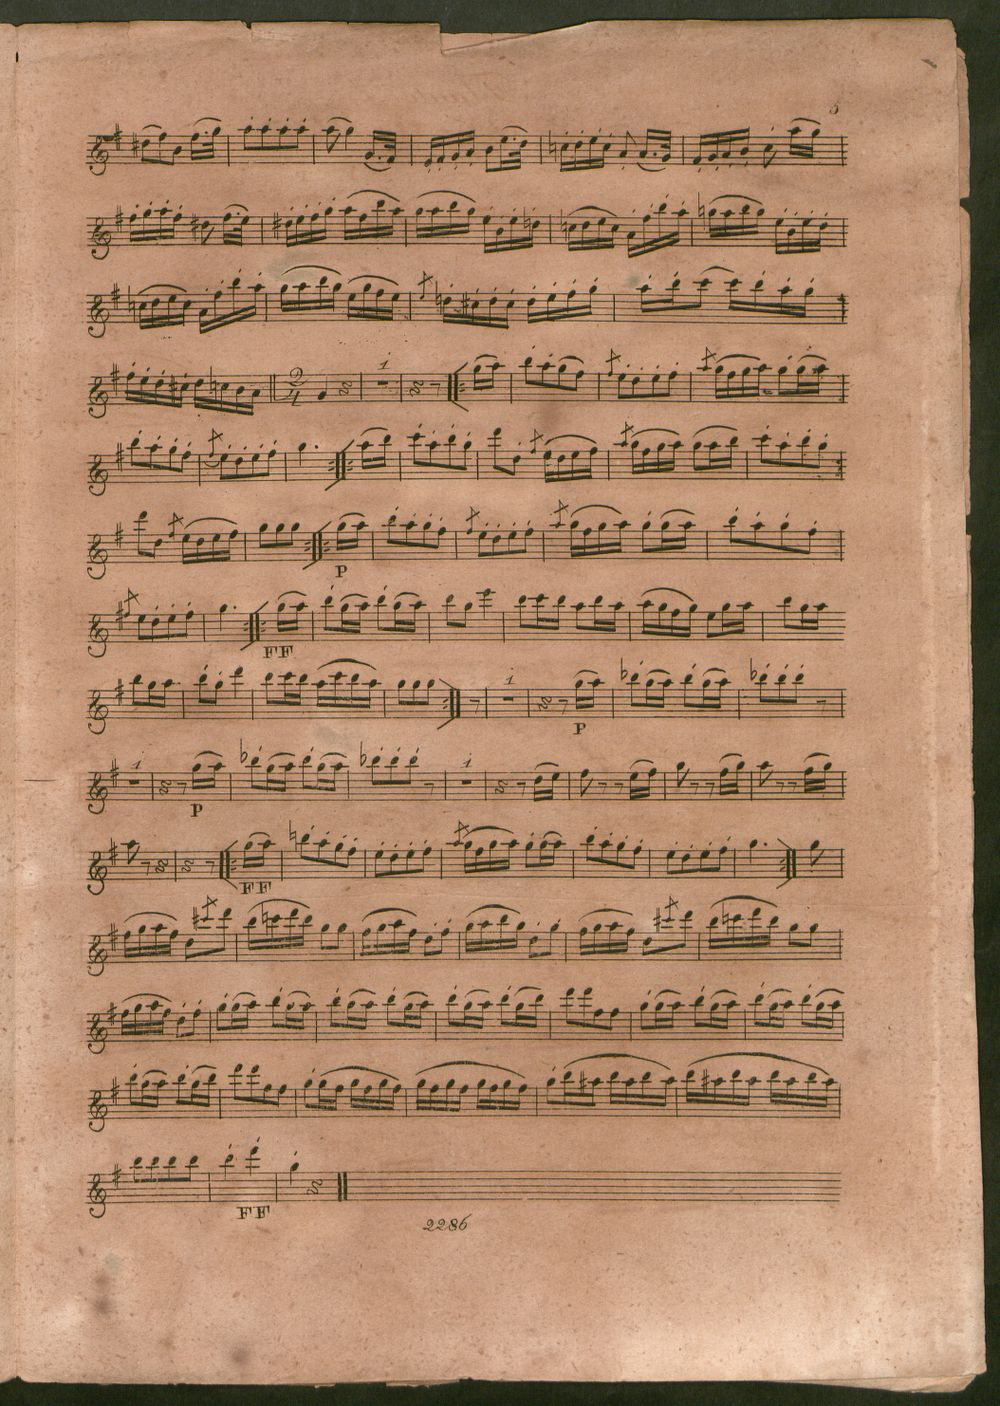 1
2
4
1
P
FF
1
P
1
1
P
FF
FF
2286